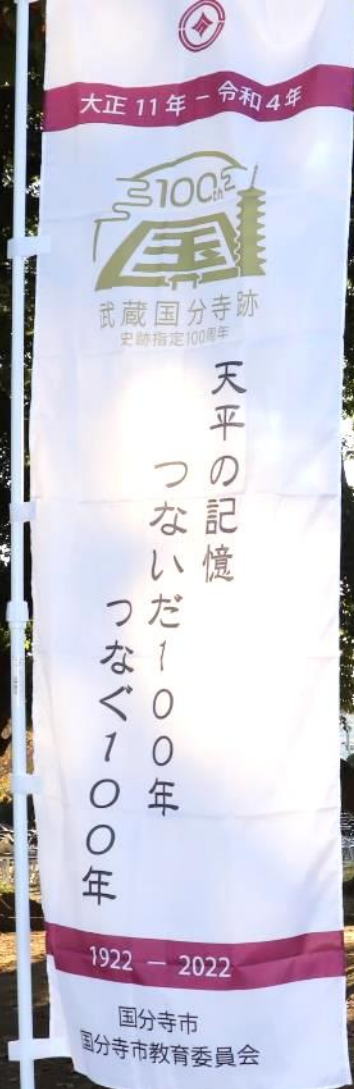 大正11年－令和4年
100th
国
武蔵国分寺跡
史跡指定100周年
天平の記憶
つないだ100年
つなぐ100年
1922 － 2022
国分寺市
国分寺市教育委員会